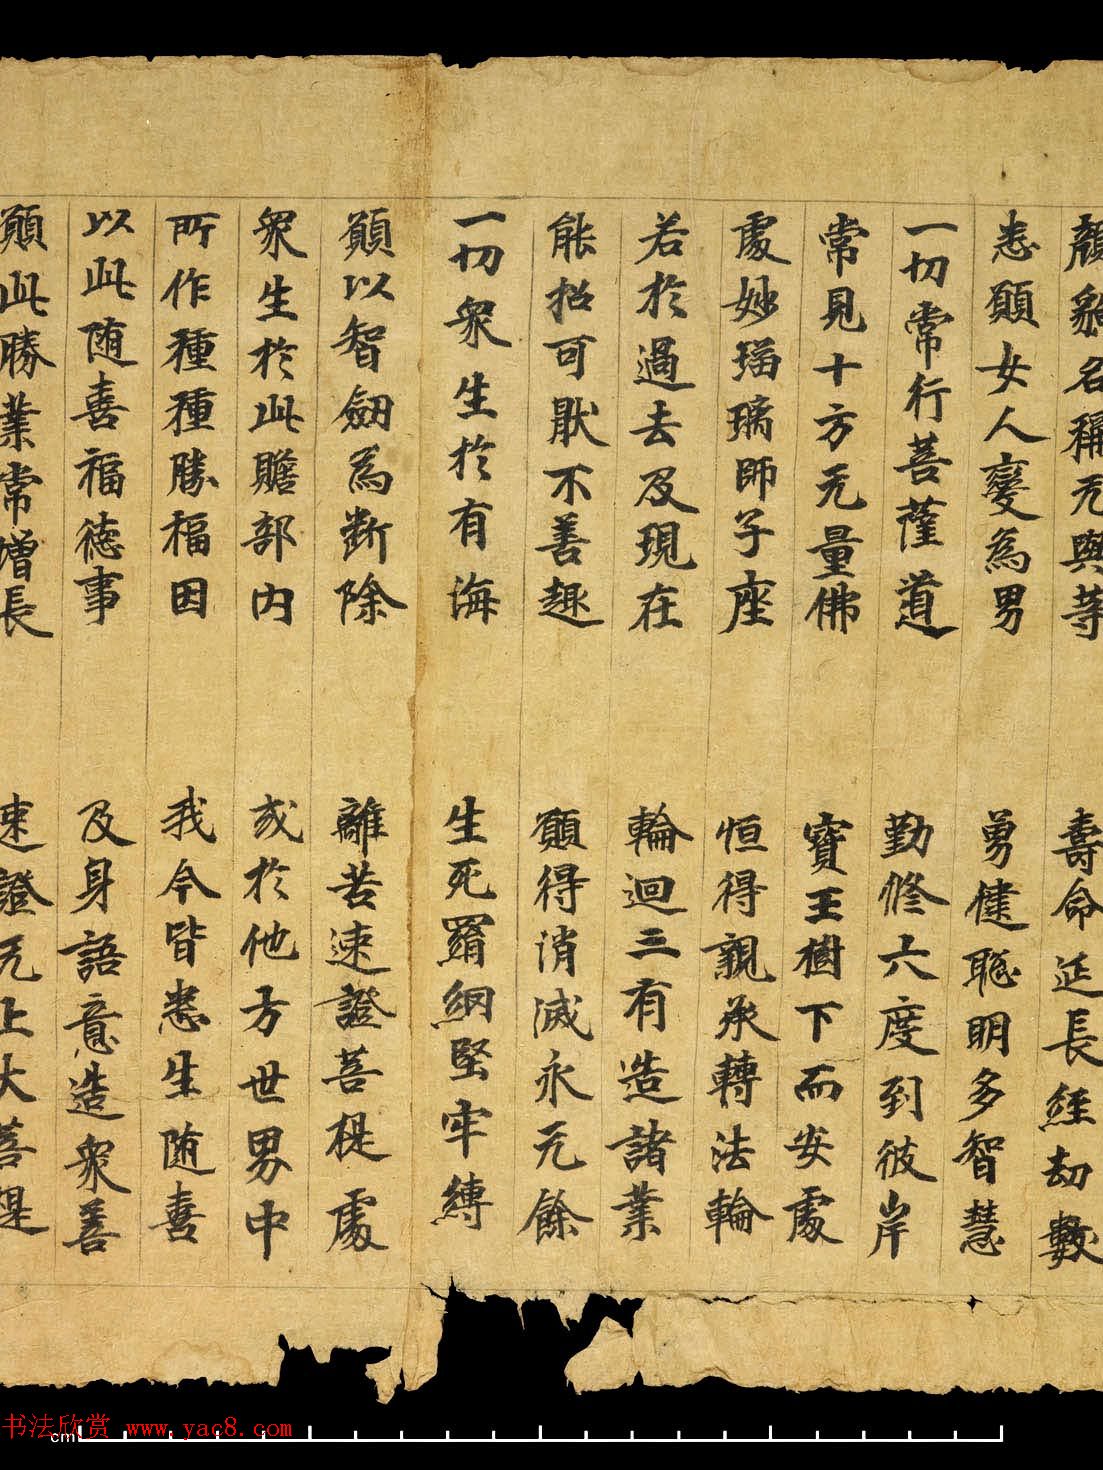 顏貌名稱无與等　壽命延長經劫數
悉願女人變為男　勇健聡明多智慧
一切常行菩薩道　勤修六度到彼岸
常見十方无量佛　寶王樹下而安處
處妙瑠璃師子座　恒得親承轉法輪
若於過去及現在　輪迴三有造諸業
能招可猒不善趣　願得消滅永无餘
一切衆生於有海　生死羂網堅牢縛
願以智劒為斷除　離苦速證菩提處
衆生於此贍部內　或於他方世界中
所作種種勝福因　我今皆悉生随喜
以此随喜福德事　及身語意造衆善
願此勝業常增長　速證无上大菩提
书法欣赏 www.yac8.com
cm